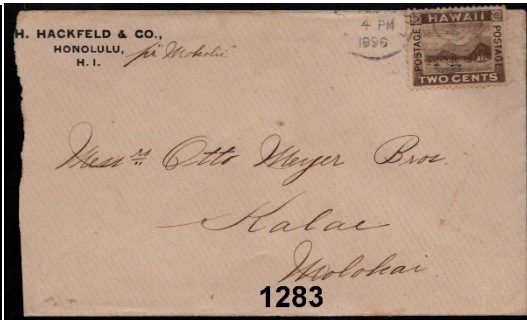 H. HACKFELD & CO.,
HONOLULU,
H. I.
pr Mokolii
4 PM
1896
HAWAII
POSTAGE
POSTAGE
TWO CENTS
Messrs Otto Meyer Bros.
Kalae
Molokai.
1283